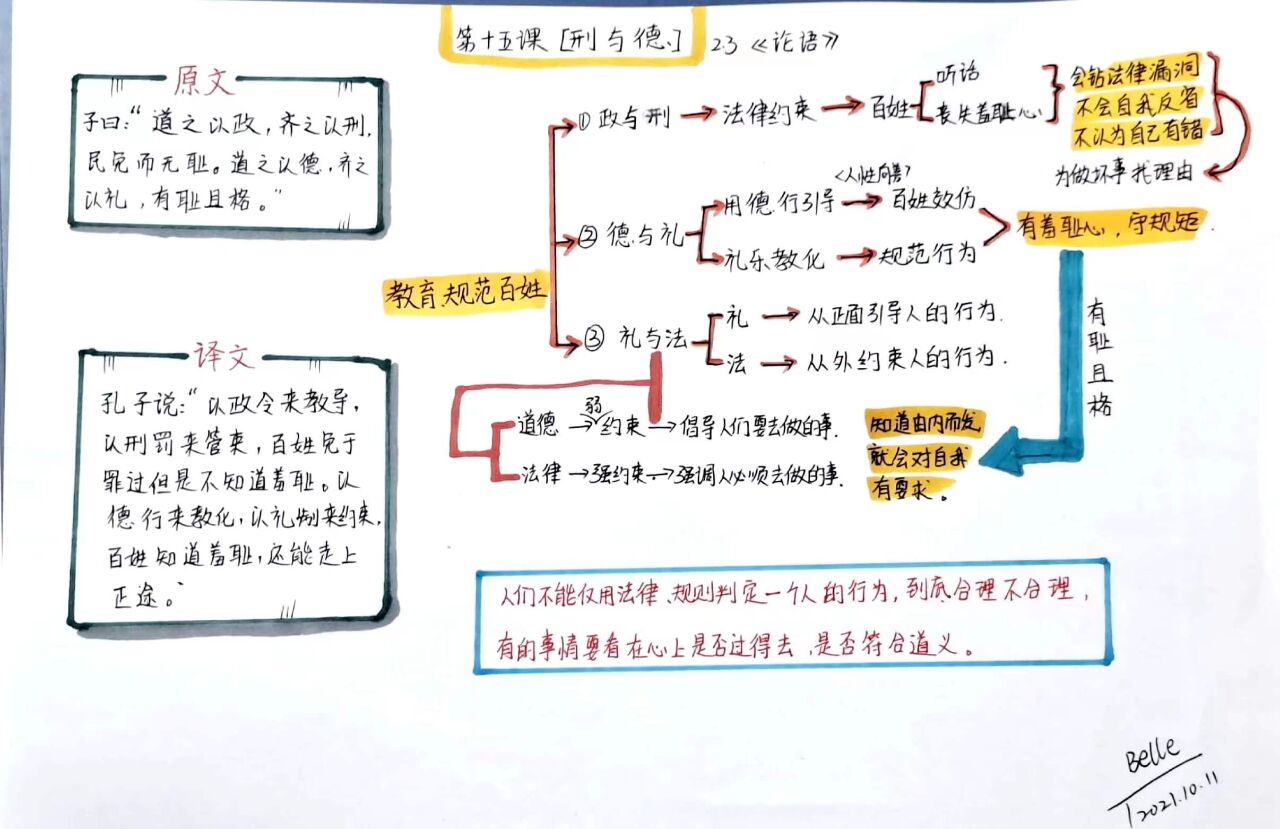 第十五课 [刑与德] 2.3 《论语》
原文
子曰：“道之以政，齐之以刑，
民免而无耻。道之以德，齐之
以礼，有耻且格。”
译文
孔子说：“以政令来教导，
以刑罚来管束，百姓免于
罪过但是不知道羞耻。以
德行来教化，以礼制来约束，
百姓知道羞耻，还能走上
正途。”
教育、规范百姓
① 政与刑 → 法律约束 → 百姓
听话
丧失羞耻心
会钻法律漏洞
不会自我反省
不认为自己有错
为做坏事找理由
② 德与礼
<人性向善>
用德行引导 → 百姓效仿
礼乐教化 → 规范行为
有羞耻心，守规矩.
③ 礼与法
礼 → 从正面引导人的行为.
法 → 从外约束人的行为.
道德 → 弱约束 → 倡导人们要去做的事.
法律 → 强约束 → 强调人必须去做的事.
有耻且格
知道由内而发，
就会对自我
有要求。
人们不能仅用法律、规则判定一个人的行为，到底合理不合理，
有的事情要看在心上是否过得去，是否符合道义。
Belle
2021.10.11